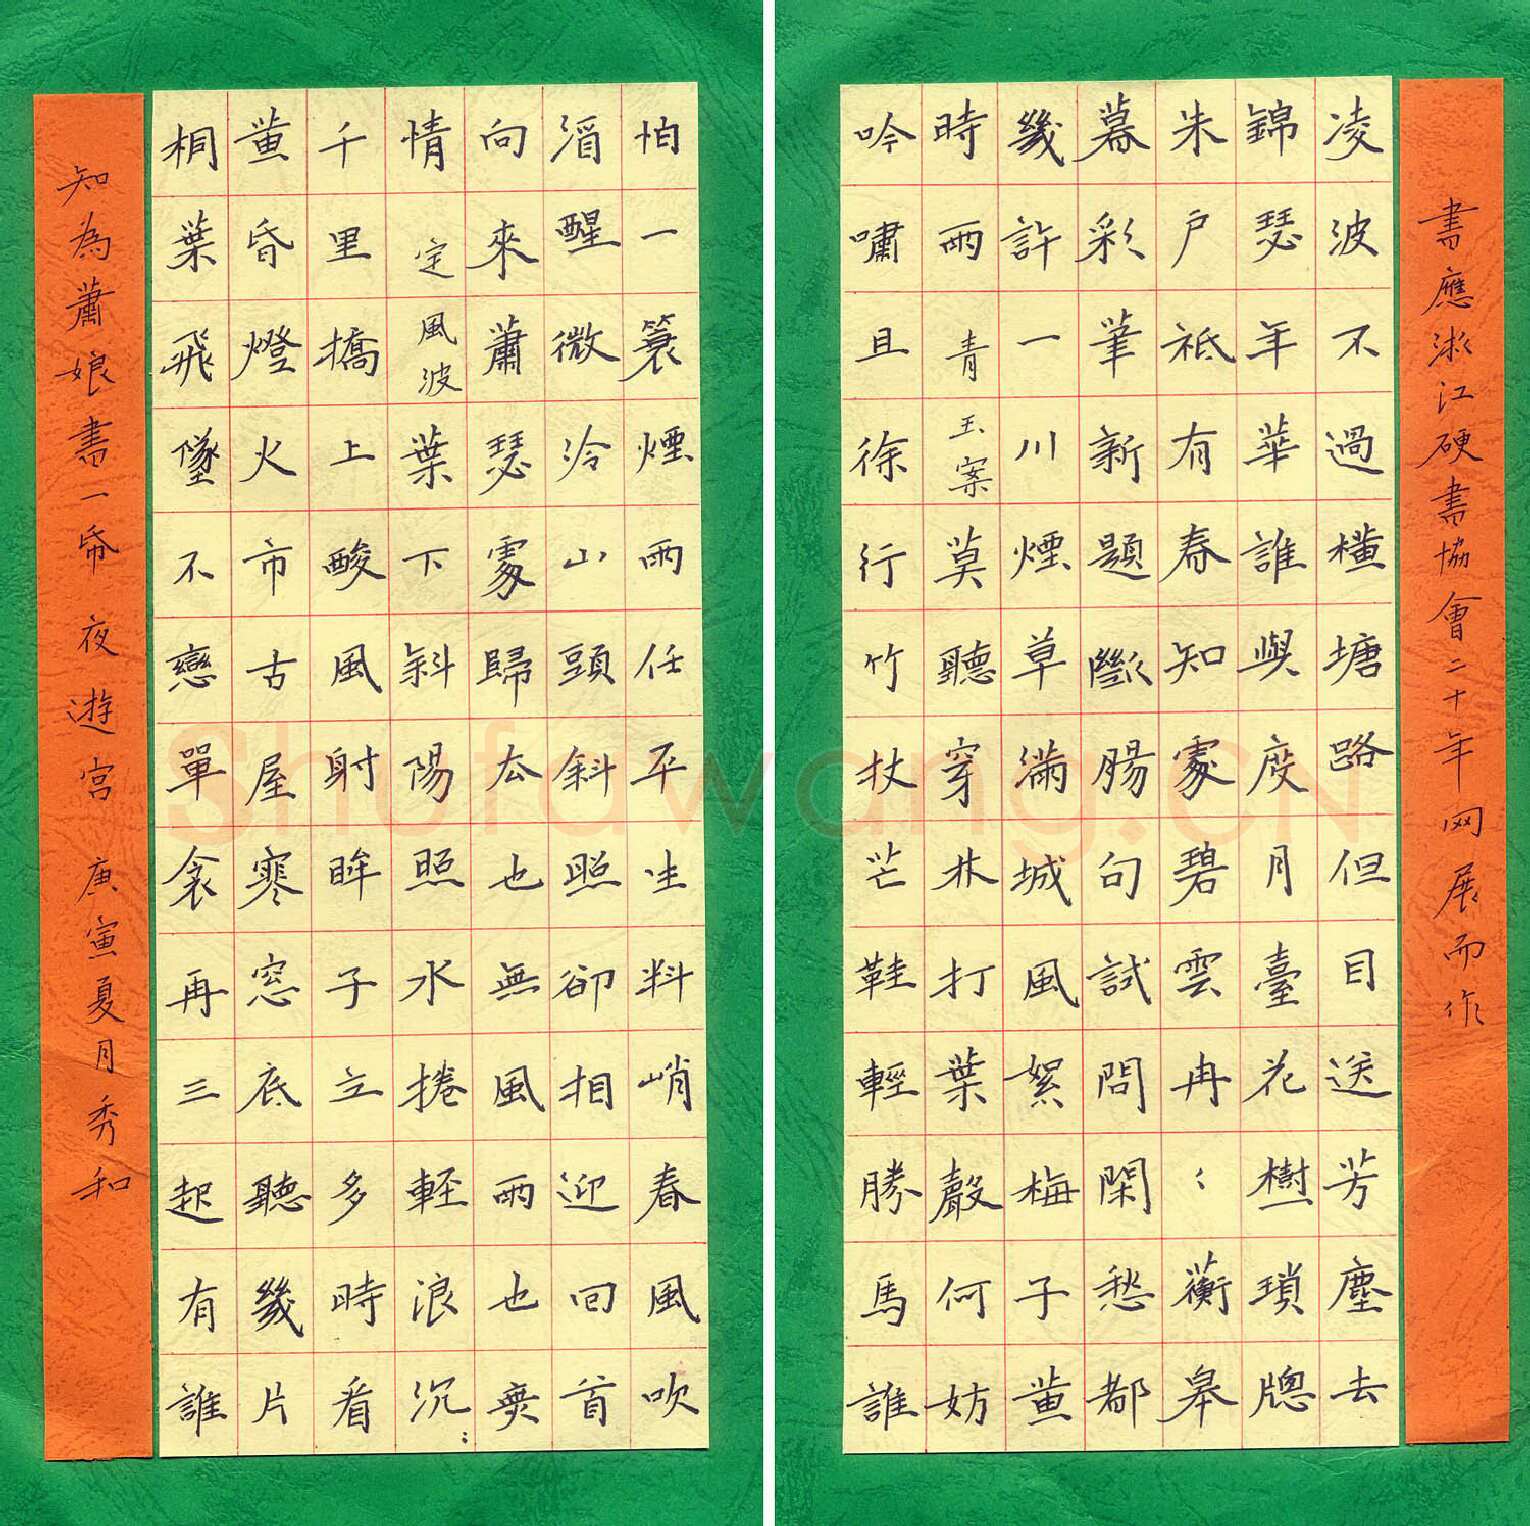 書應江硬書協會二十年网展而作
凌波不過橫塘路但目送芳塵去
錦瑟年華誰與度月臺花樹瑣牕
朱戶祗有春知處碧雲冉〻蘅皋
暮彩筆新題斷腸句試問閑愁都
幾許一川煙草滿城風絮梅子黃
時雨青玉案莫聽穿林打葉聲何妨
吟嘯且徐行竹杖芒鞋輕勝馬誰
怕一蓑煙雨任平生料峭春風吹
酒醒微冷山頭斜照卻相迎回首
向來蕭瑟處歸去也無風雨也無
情定風波葉下斜陽照水捲輕浪沉〻
千里橋上酸風射眸子立多時看
黃昏燈火市古屋寒窓底聽幾片
桐葉飛墜不戀單衾再三起有誰
知為蕭娘書一帋 夜遊宮 庚寅夏月秀和
Shufawang.CN